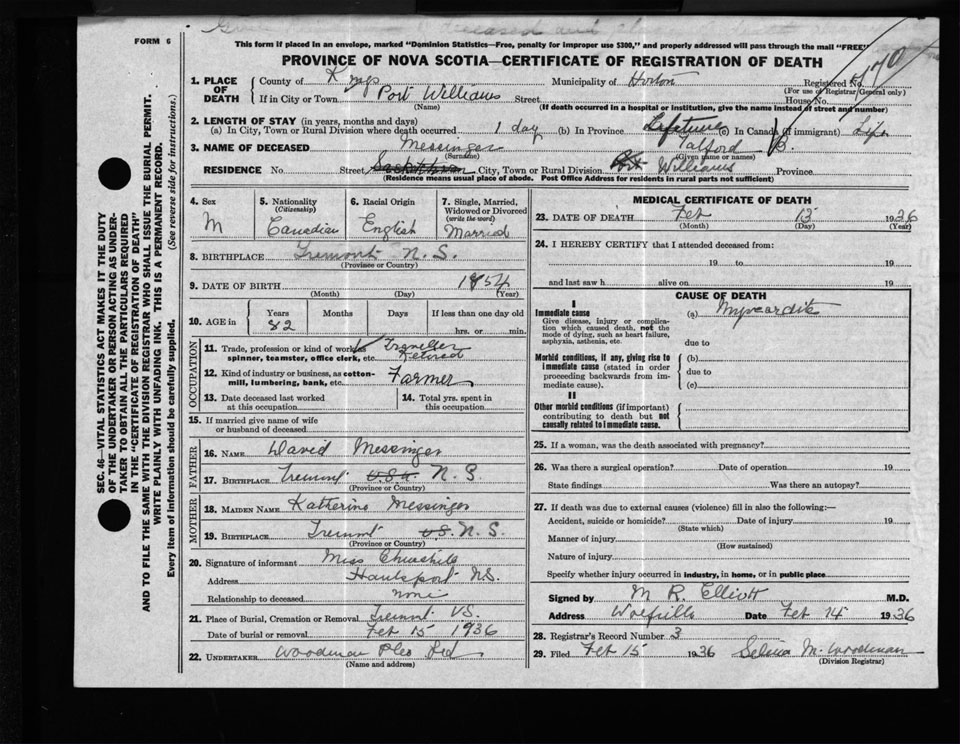 FORM 6
This form if placed in an envelope, marked "Dominion Statistics—Free, penalty for improper use $300," and properly addressed will pass through the mail "FREE"
PROVINCE OF NOVA SCOTIA—CERTIFICATE OF REGISTRATION OF DEATH
1. PLACE OF DEATH County of Kings Municipality of Horton Registered No.
(For use of Registrar General only)
If in City or Town Port Williams Street House No.
(Name) (If death occurred in a hospital or institution, give the name instead of street and number)
2. LENGTH OF STAY (in years, months and days)
(a) In City, Town or Rural Division where death occurred 1 day (b) In Province Lifetime (c) In Canada (if immigrant) Life
3. NAME OF DECEASED Messinger Talford B.
(Surname) (Given name or names)
RESIDENCE No. Street City, Town or Rural Division Pt Williams Province
(Residence means usual place of abode. Post Office Address for residents in rural parts not sufficient)
4. Sex M
5. Nationality (Citizenship) Canadian
6. Racial Origin English
7. Single, Married, Widowed or Divorced (write the word) Married
8. BIRTHPLACE Tremont N.S.
(Province or Country)
9. DATE OF BIRTH 1854
(Month) (Day) (Year)
10. AGE in Years 82 Months Days If less than one day old hrs. or min.
OCCUPATION
11. Trade, profession or kind of work as spinner, teamster, office clerk, etc. Traveller Retired
12. Kind of industry or business, as cotton-mill, lumbering, bank, etc. Farmer
13. Date deceased last worked at this occupation
14. Total yrs. spent in this occupation
15. If married give name of wife or husband of deceased
FATHER
16. NAME David Messinger
17. BIRTHPLACE Tremont U.S.A. N.S.
(Province or Country)
MOTHER
18. MAIDEN NAME Katherine Messinger
19. BIRTHPLACE Tremont U.S. N.S.
(Province or Country)
20. Signature of informant Miss
Address Hantsport N.S.
Relationship to deceased none
21. Place of Burial, Cremation or Removal Tremont
Date of burial or removal Feb 15 1936
22. UNDERTAKER Woodman
(Name and address)
MEDICAL CERTIFICATE OF DEATH
23. DATE OF DEATH Feb 13 1936
(Month) (Day) (Year)
24. I HEREBY CERTIFY that I attended deceased from:
19 to 19
and last saw h alive on 19
CAUSE OF DEATH
I
Immediate cause (a) Myocarditis
Give disease, injury or complication which caused death, not the mode of dying, such as heart failure, asphyxia, asthenia, etc.
due to
Morbid conditions, if any, giving rise to immediate cause (stated in order proceeding backwards from immediate cause).
(b)
due to
(c)
II
Other morbid conditions (if important) contributing to death but not causally related to immediate cause.
25. If a woman, was the death associated with pregnancy?
26. Was there a surgical operation? Date of operation 19
State findings Was there an autopsy?
27. If death was due to external causes (violence) fill in also the following:—
Accident, suicide or homicide? Date of injury 19
(State which)
Manner of injury
(How sustained)
Nature of injury
Specify whether injury occurred in industry, in home, or in public place
Signed by M R. Elliott M.D.
Address Wolfville Date Feb 1936
28. Registrar's Record Number 3
29. Filed Feb 15 1936 Selina M. Woodman
(Division Registrar)
SEC. 46—VITAL STATISTICS ACT MAKES IT THE DUTY
OF THE UNDERTAKER OR PERSON ACTING AS UNDER-
TAKER TO OBTAIN ALL THE PARTICULARS REQUIRED
IN THE "CERTIFICATE OF REGISTRATION OF DEATH"
AND TO FILE THE SAME WITH THE DIVISION REGISTRAR WHO SHALL ISSUE THE BURIAL PERMIT.
WRITE PLAINLY WITH UNFADING INK. THIS IS A PERMANENT RECORD.
Every item of information should be carefully supplied. (See reverse side for instructions.)